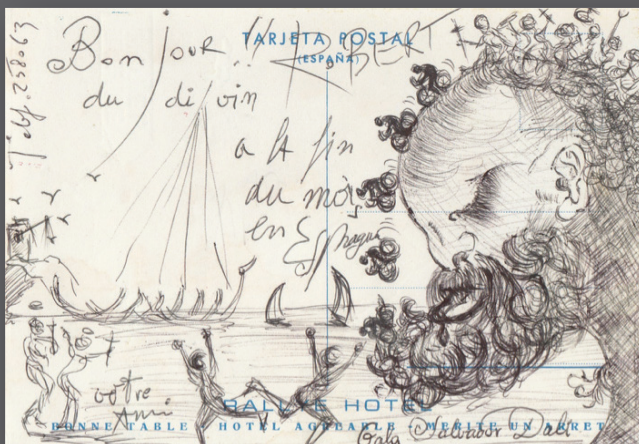 Bonjour !! ROBERT
TARJETA POSTAL
(ESPAÑA)
du divin
a la fin
du mois
en Espagne
Telf. 258063
votre
Ami
RALLYE HOTEL
BONNE TABLE HOTEL AGREABLE MERITE UN ARRET
Gala Salvador Dalí